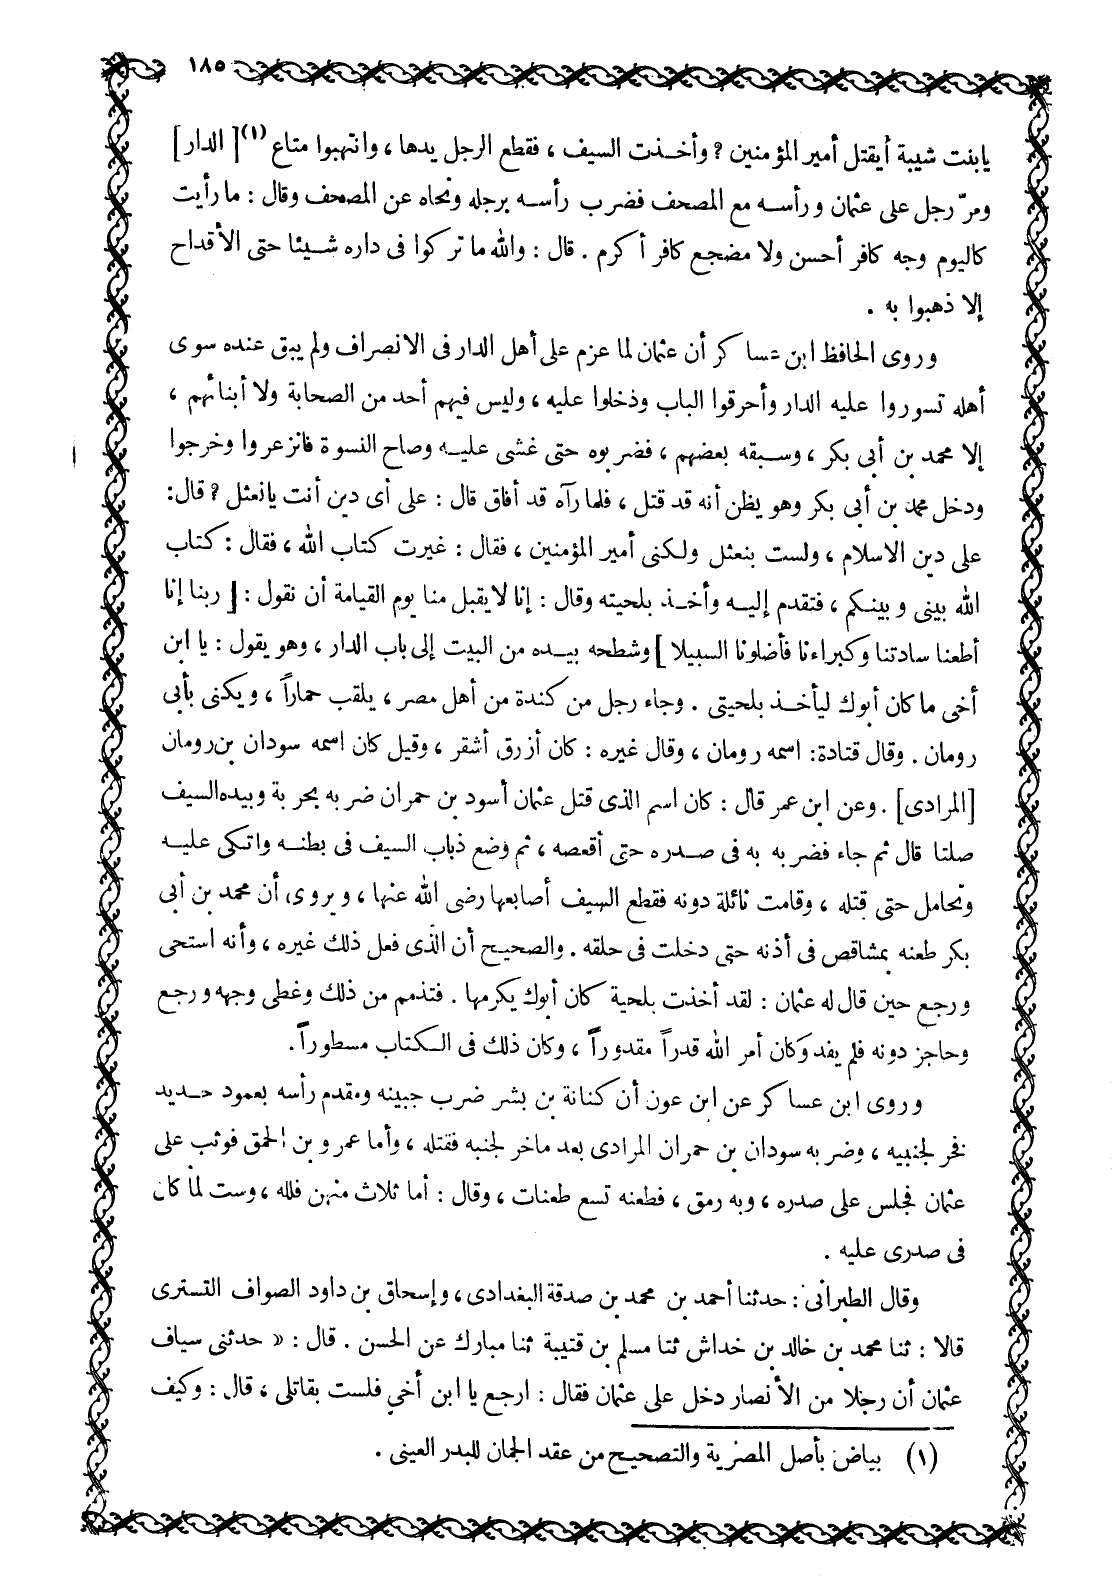 ١٨٥
يابنت شيبة أيقتل أمير المؤمنين ? وأخذت السيف ، فقطع الرجل يدها ، وانتهبوا متاع (١)[ الدار ]
ومرّ رجل على عثمان ورأسه مع المصحف فضرب رأسه برجله ونحاه عن المصحف وقال : ما رأيت
كاليوم وجه كافر أحسن ولا مضجع كافر أكرم . قال : والله ما تركوا فى داره شيئا حتى الأقداح
إلا ذهبوا به .
وروى الحافظ ابن عساكر أن عثمان لما عزم على أهل الدار فى الانصراف ولم يبق عنده سوى
أهله تسوروا عليه الدار وأحرقوا الباب ودخلوا عليه ، وليس فيهم أحد من الصحابة ولا أبنائهم ،
إلا محمد بن أبى بكر ، وسبقه بعضهم ، فضربوه حتى غشى عليه وصاح النسوة فانزعروا وخرجوا
ودخل محمد بن أبى بكر وهو يظن أنه قد قتل ، فلما رآه قد أفاق قال : على أى دين أنت يانعثل ? قال:
على دين الاسلام ، ولست بنعثل ولكنى أمير المؤمنين ، فقال : غيرت كتاب الله ، فقال : كتاب
الله بينى وبينكم ، فتقدم إليه وأخذ بلحيته وقال : إنا لا يقبل منا يوم القيامة أن نقول : [ ربنا إنا
أطعنا سادتنا وكبراءنا فأضلونا السبيلا ] وشطحه بيده من البيت إلى باب الدار ، وهو يقول : يا ابن
أخى ما كان أبوك ليأخذ بلحيتى . وجاء رجل من كندة من أهل مصر ، يلقب حماراً ، ويكنى بأبى
رومان . وقال قتادة: اسمه رومان ، وقال غيره : كان أزرق أشقر ، وقيل كان اسمه سودان بن رومان
[المرادى] . وعن ابن عمر قال : كان اسم الذى قتل عثمان أسود بن حمران ضربه بحربة وبيده السيف
صلتا قال ثم جاء فضربه به فى صدره حتى أقعصه ، ثم وضع ذباب السيف فى بطنه واتكى عليه
وتحامل حتى قتله ، وقامت نائلة دونه فقطع السيف أصابعها رضى الله عنها ، ويروى أن محمد بن أبى
بكر طعنه بمشاقص فى أذنه حتى دخلت فى حلقه . والصحيح أن الذى فعل ذلك غيره ، وأنه استحى
ورجع حين قال له عثمان : لقد أخذت بلحية كان أبوك يكرمها . فتذمم من ذلك وغطى وجهه ورجع
وحاجز دونه فلم يفد وكان أمر الله قدراً مقدوراً ، وكان ذلك فى الكتاب مسطوراً .
وروى ابن عساكر عن ابن عون أن كنانة بن بشر ضرب جبينه ومقدم رأسه بعمود حديد
فخر لجنبيه ، وضربه سودان بن حمران المرادى بعد ماخر لجنبه فقتله ، وأما عمرو بن الحمق فوثب على
عثمان فجلس على صدره ، وبه رمق ، فطعنه تسع طعنات ، وقال : أما ثلاث منهن فلله ، وست لما كان
فى صدرى عليه .
وقال الطبرانى : حدثنا أحمد بن محمد بن صدقة البغدادى ، وإسحاق بن داود الصواف التسترى
قالا : ثنا محمد بن خالد بن خداش ثنا مسلم بن قتيبة ثنا مبارك عن الحسن . قال : « حدثنى سياف
عثمان أن رجلا من الأنصار دخل على عثمان فقال : ارجع يا ابن أخى فلست بقاتلى ، قال : وكيف
(١) بياض بأصل المصرية والتصحيح من عقد الجمان للبدر العينى .